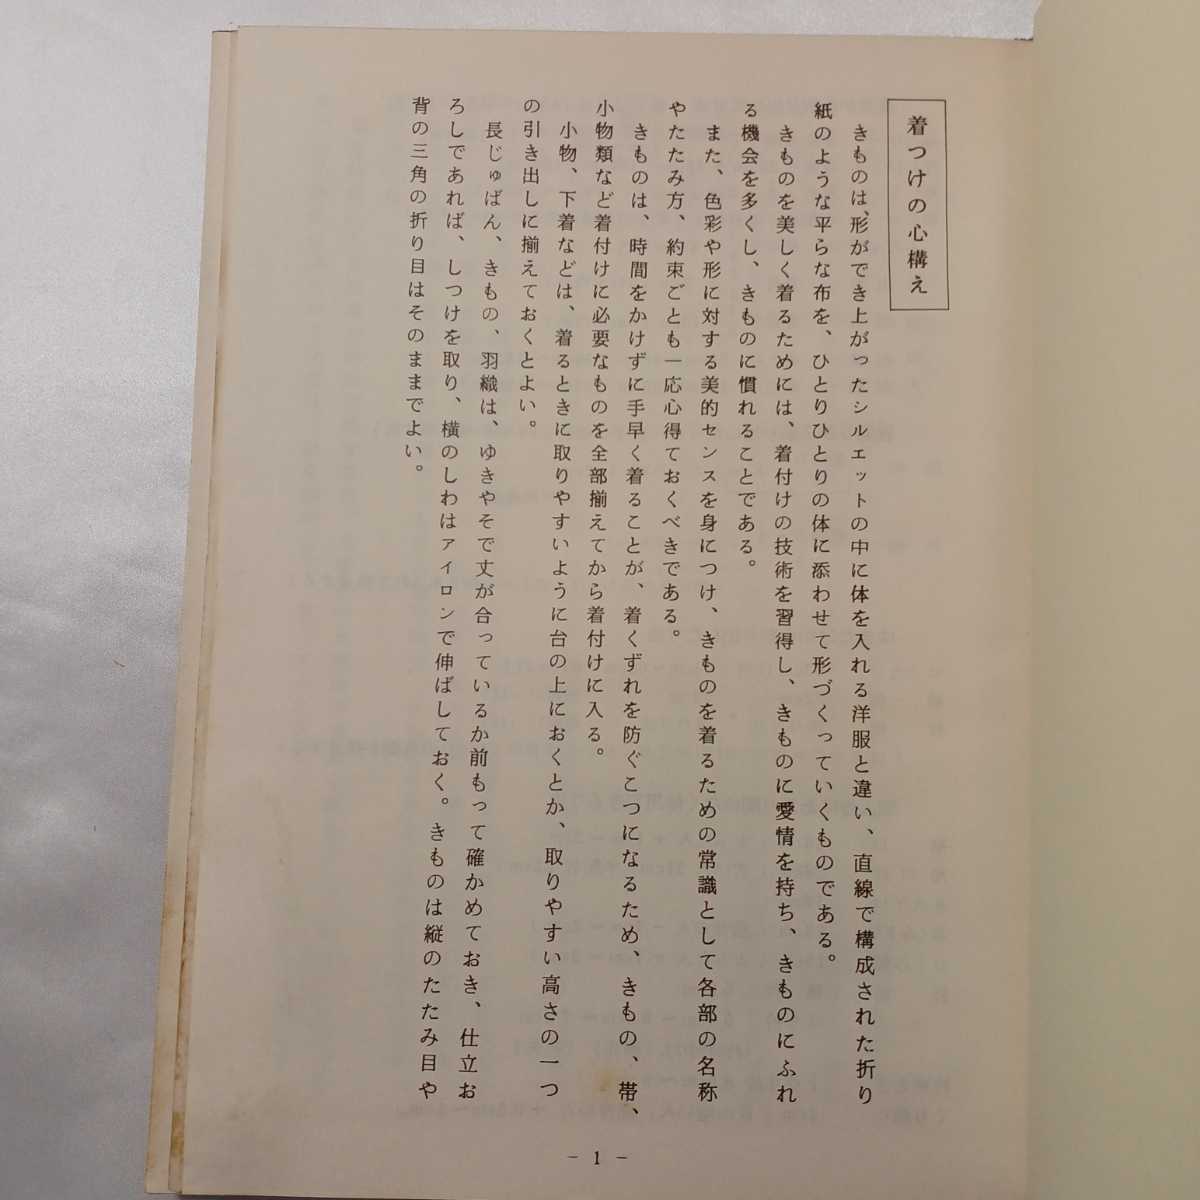 着つけの心構え
きものは、形ができ上がったシルエットの中に体を入れる洋服と違い、直線で構成された折り
紙のような平らな布を、ひとりひとりの体に添わせて形づくっていくものである。
きものを美しく着るためには、着付けの技術を習得し、きものに愛情を持ち、きものにふれ
る機会を多くし、きものに慣れることである。
また、色彩や形に対する美的センスを身につけ、きものを着るための常識として各部の名称
やたたみ方、約束ごとも一応心得ておくべきである。
きものは、時間をかけずに手早く着ることが、着くずれを防ぐこつになるため、きもの、帯、
小物類など着付けに必要なものを全部揃えてから着付けに入る。
小物、下着などは、着るときに取りやすいように台の上におくとか、取りやすい高さの一つ
の引き出しに揃えておくとよい。
長じゅばん、きもの、羽織は、ゆきやそで丈が合っているか前もって確かめておき、仕立お
ろしであれば、しつけを取り、横のしわはアイロンで伸ばしておく。きものは縦のたたみ目や
背の三角の折り目はそのままでよい。
- 1 -